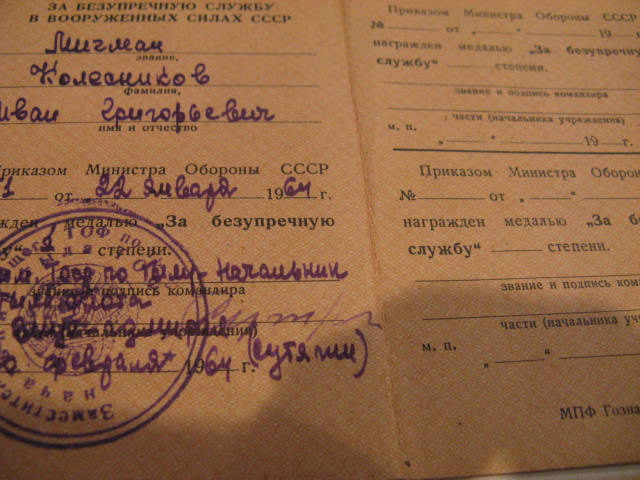 ЗА БЕЗУПРЕЧНУЮ СЛУЖБУ
В ВООРУЖЕННЫХ СИЛАХ СССР
Мичман
звание,
Колесников
фамилия,
Иван Григорьевич
имя и отчество
Приказом Министра Обороны СССР
1 от 22 января 1964 г.
медалью „За безупречную
1 степени.
по тылу - начальник
звание и подпись командира
февраля 1964 г.
Приказом Министра Обороны СССР
№ от „ “ 19 г.
награжден медалью „За безупречн
службу“ степени.
звание и подпись командира
м. п. части (начальника учреждения)
„ “ 19 г.
Приказом Министра Оборон
№ от „ “
награжден медалью „За бе
службу“ степени.
звание и подпись коман
части (начальника учре
м. п.
„ “
МПФ Гозна